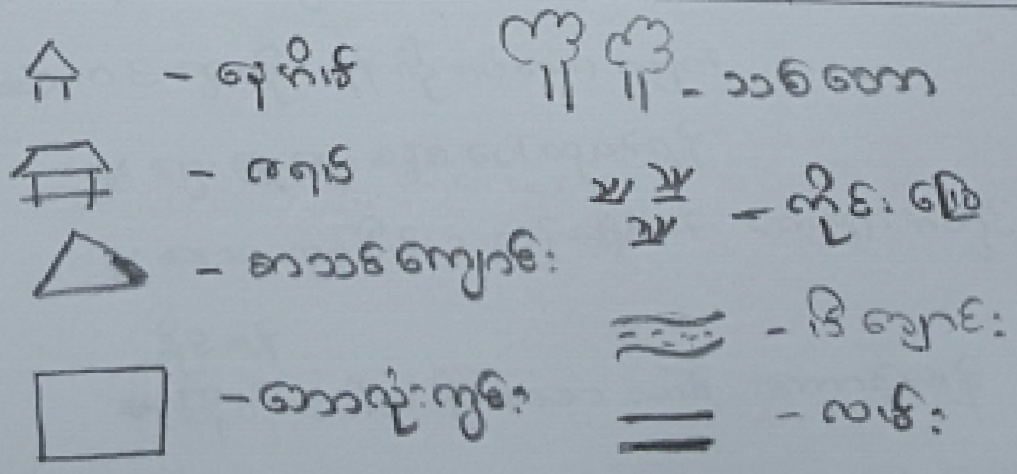 - နေအိမ်
- ဇရပ်
- စာသင်ကျောင်း
- ဘောလုံးကွင်း
- သစ်တော
- ကိုင်းမြေ
- မြစ်ချောင်း
- လမ်း